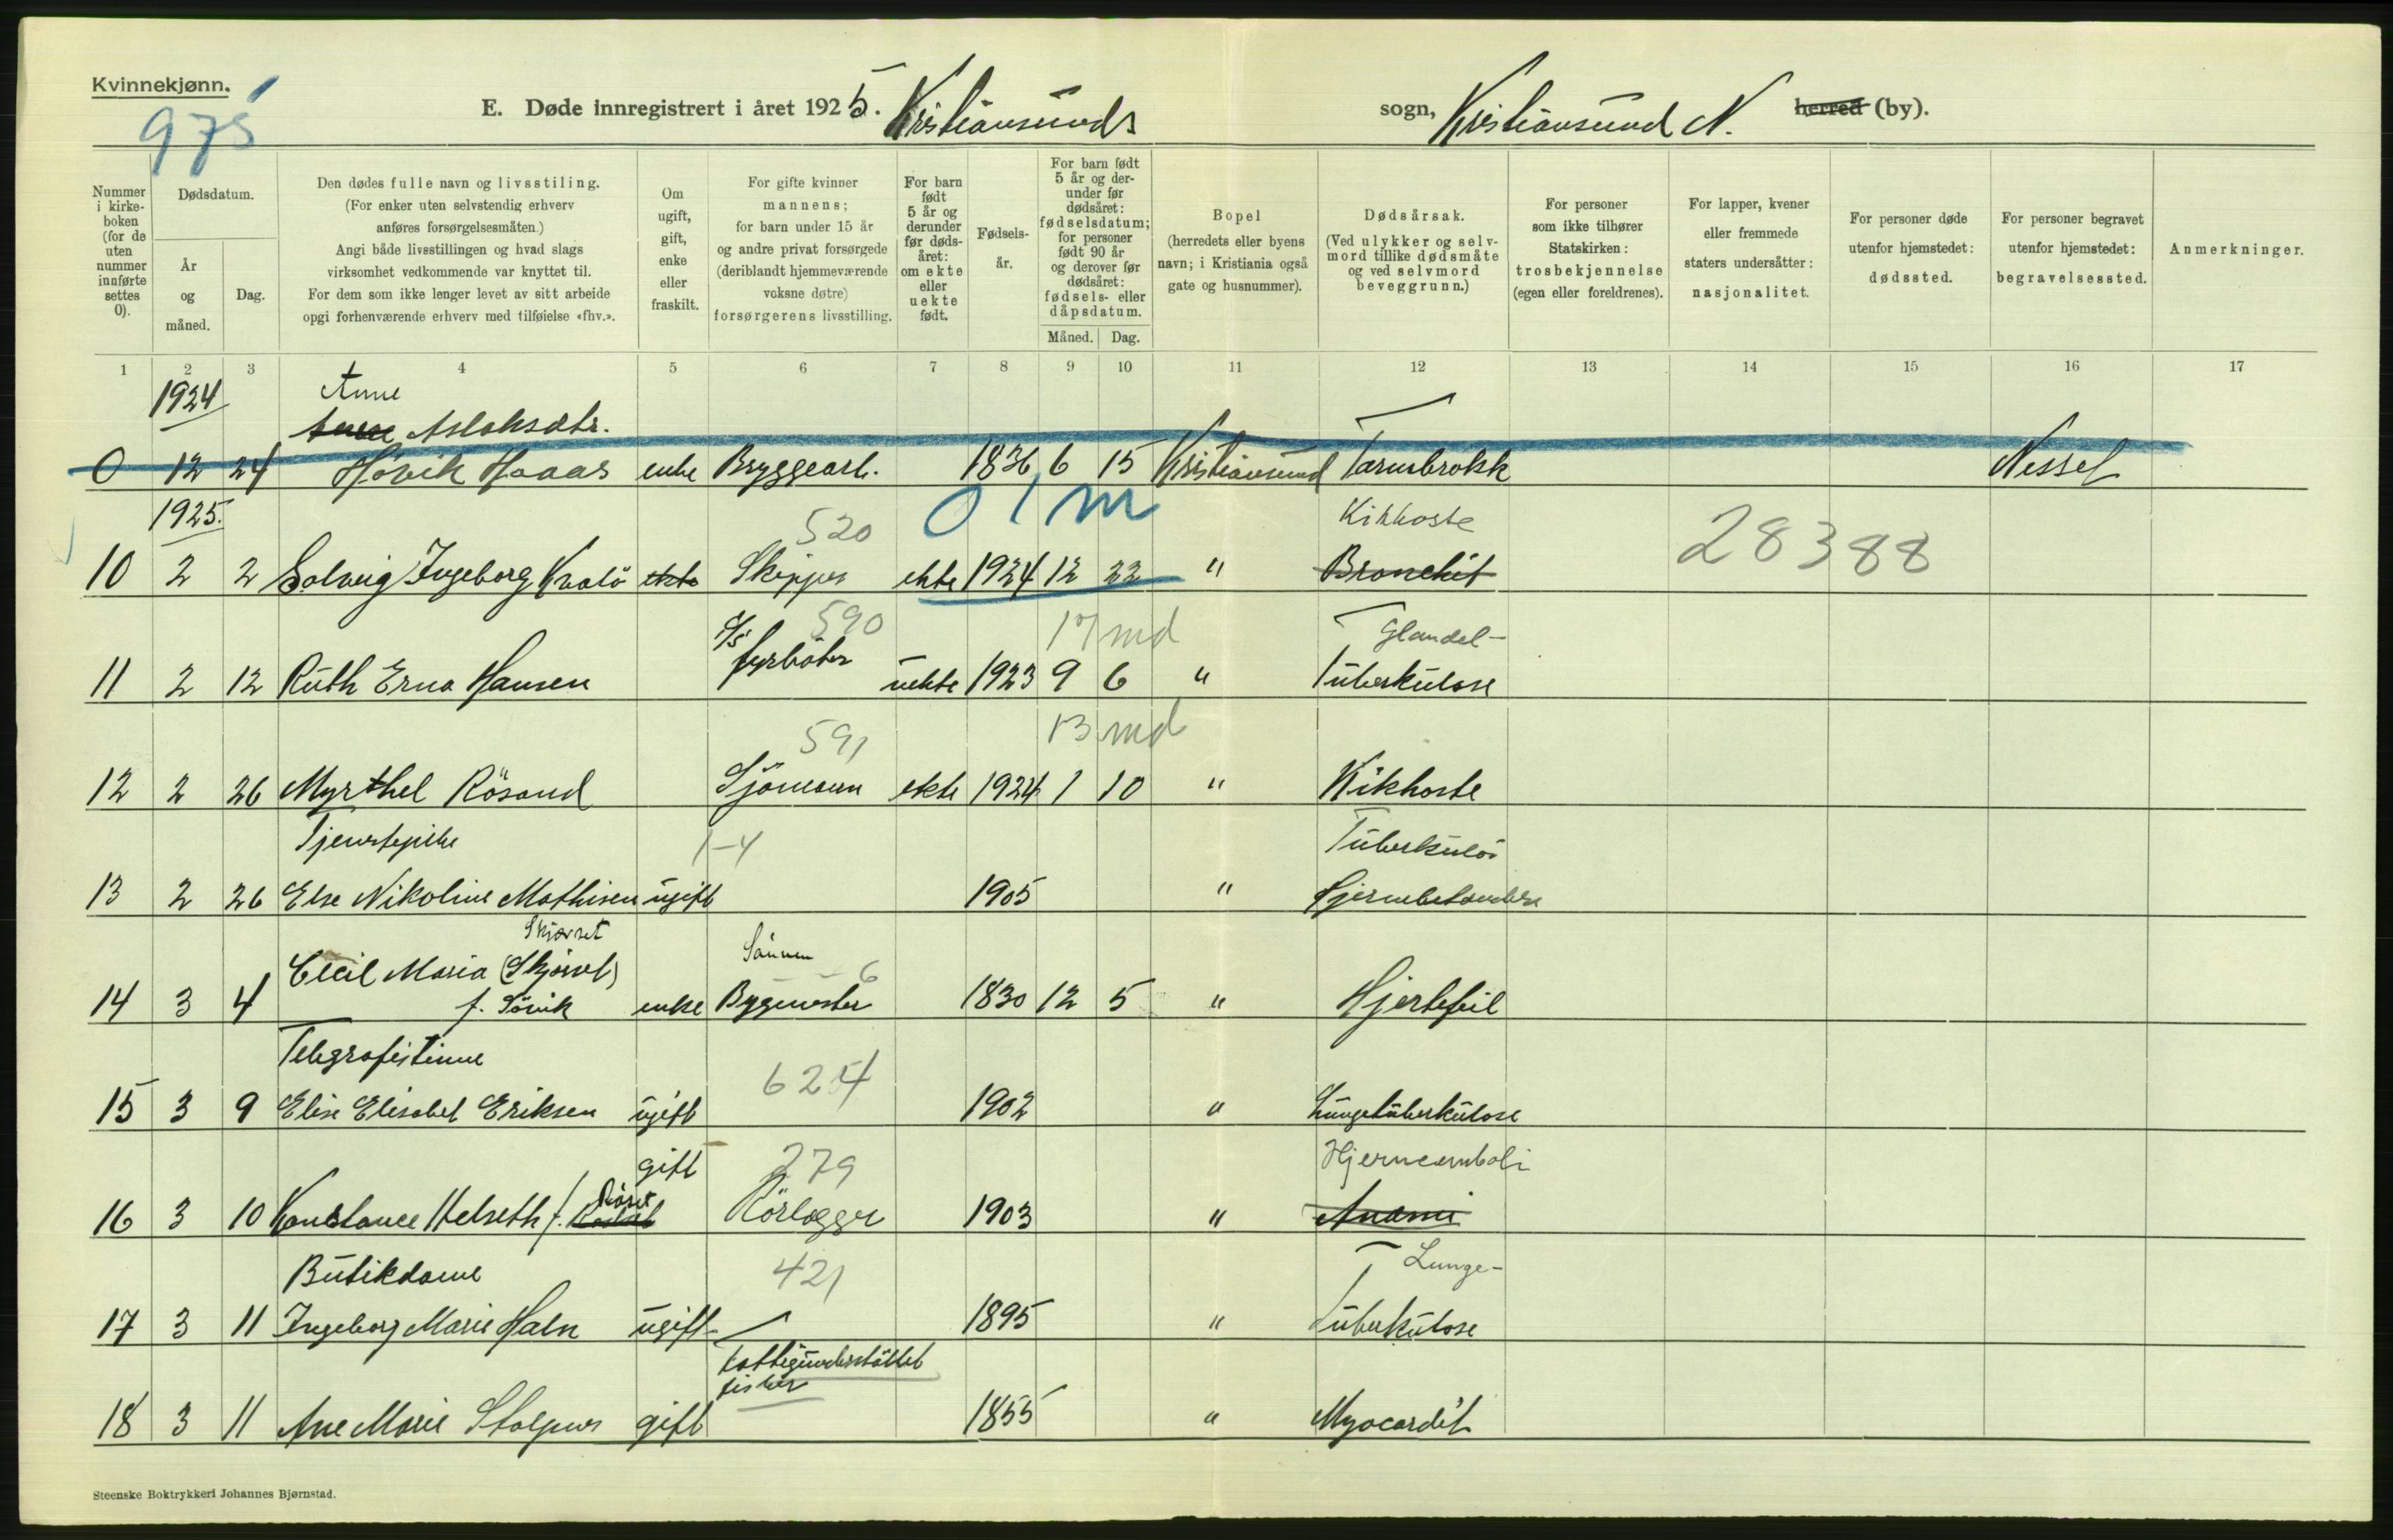 Kvinnekjønn.
975
E. Døde innregistrert i året 1925. Kristiansunds sogn, Kristiansund N. herred (by).
Nummer i kirkeboken (for de uten nummer innførte settes 0).
Dødsdatum.
År og måned.
Dag.
Den dødes fulle navn og livsstilling.
(For enker uten selvstendig erhverv
anføres forsørgelsesmåten.)
Angi både livsstillingen og hvad slags
virksomhet vedkommende var knyttet til.
For dem som ikke lenger levet av sitt arbeide
opgi forhenværende erhverv med tilføielse «fhv.».
Om ugift, gift, enke eller fraskilt.
For gifte kvinner
mannens;
for barn under 15 år
og andre privat forsørgede
(deriblandt hjemmeværende
voksne døtre)
forsørgerens livsstilling.
For barn født 5 år og derunder før dødsåret: om ekte eller uekte født.
Fødselsår.
For barn født 5 år og derunder før dødsåret: fødselsdatum; for personer født 90 år og derover før dødsåret: fødsels- eller dåpsdatum.
Måned. Dag.
Bopel
(herredets eller byens
navn; i Kristiania også
gate og husnummer).
Dødsårsak.
(Ved ulykker og selvmord tillike dødsmåte og ved selvmord beveggrunn.)
For personer
som ikke tilhører
Statskirken:
trosbekjennelse
(egen eller foreldrenes).
For lapper, kvener
eller fremmede
staters undersåtter:
nasjonalitet.
For personer døde
utenfor hjemstedet:
dødssted.
For personer begravet
utenfor hjemstedet:
begravelsessted.
Anmerkninger.
1 2 3 4 5 6 7 8 9 10 11 12 13 14 15 16 17
1924 Anne
Aslaksdtr.
0 12 24 Hovik Haas enke Bryggearb. 1836 6 15 Kristiansund Tarmbrokk Nesset
1925. 520 0 1 m Kikhoste 28388
10 2 2 Solveig Ingeborg Kvalö ekte Skipper ekte 1924 12 22 " Bronchit
590 17 md Glandel-
11 2 12 Ruth Erna Hansen fyrböter uekte 1923 9 6 " Tuberkulose
591 13 md
12 2 26 Myrthel Rösand Sjömann ekte 1924 1 10 " Kikhoste
Tjenestepike 1-4 Tuberkulös
13 2 26 Else Nikoline Mathisen ugift 1905 " Hjernebetændelse
Skjørset Sönnen
Cecil Maria (Skjørset) 6
14 3 4 f. Sörvik enke Bygmester 1830 12 5 " Hjertefeil
Telegrafistinne 6254
15 3 9 Elise Elisabet Eriksen ugift 1902 " Lungetuberkulose
gift 279 Hjerneemboli
16 3 10 Konstance Helseth f. Röset Rörlegger 1903 " Anæmi
Butikdame 421 Lunge-
17 3 11 Ingeborg Marie Holm ugift 1895 " Tuberkulose
fattigunderstöttet
fisker
18 3 11 Ane Marie Stolpnes gift 1855 " Myocardit
Steenske Boktrykkeri Johannes Bjørnstad.